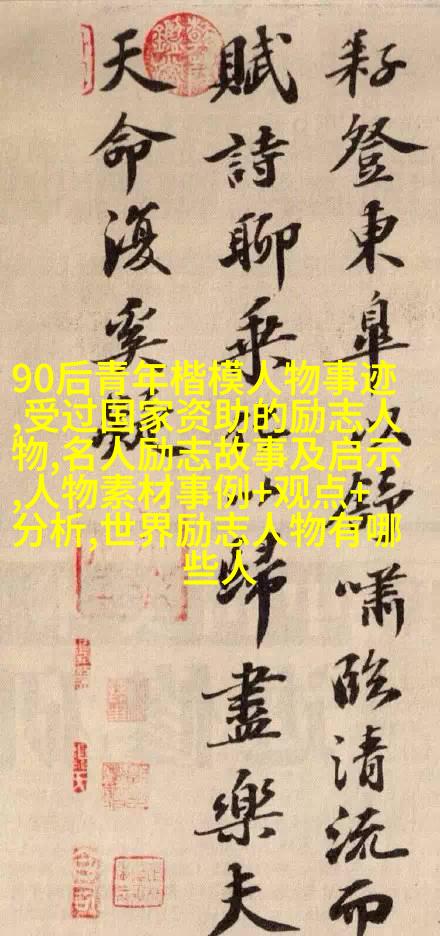 耔登東皐以舒嘯臨清流而
賦詩聊乘化以歸盡樂夫
天命復奚疑
90后青年楷模人物事迹
,受过国家资助的励志人
物,名人励志故事及启示
,人物素材事例+观点+
分析,世界励志人物有哪
些人